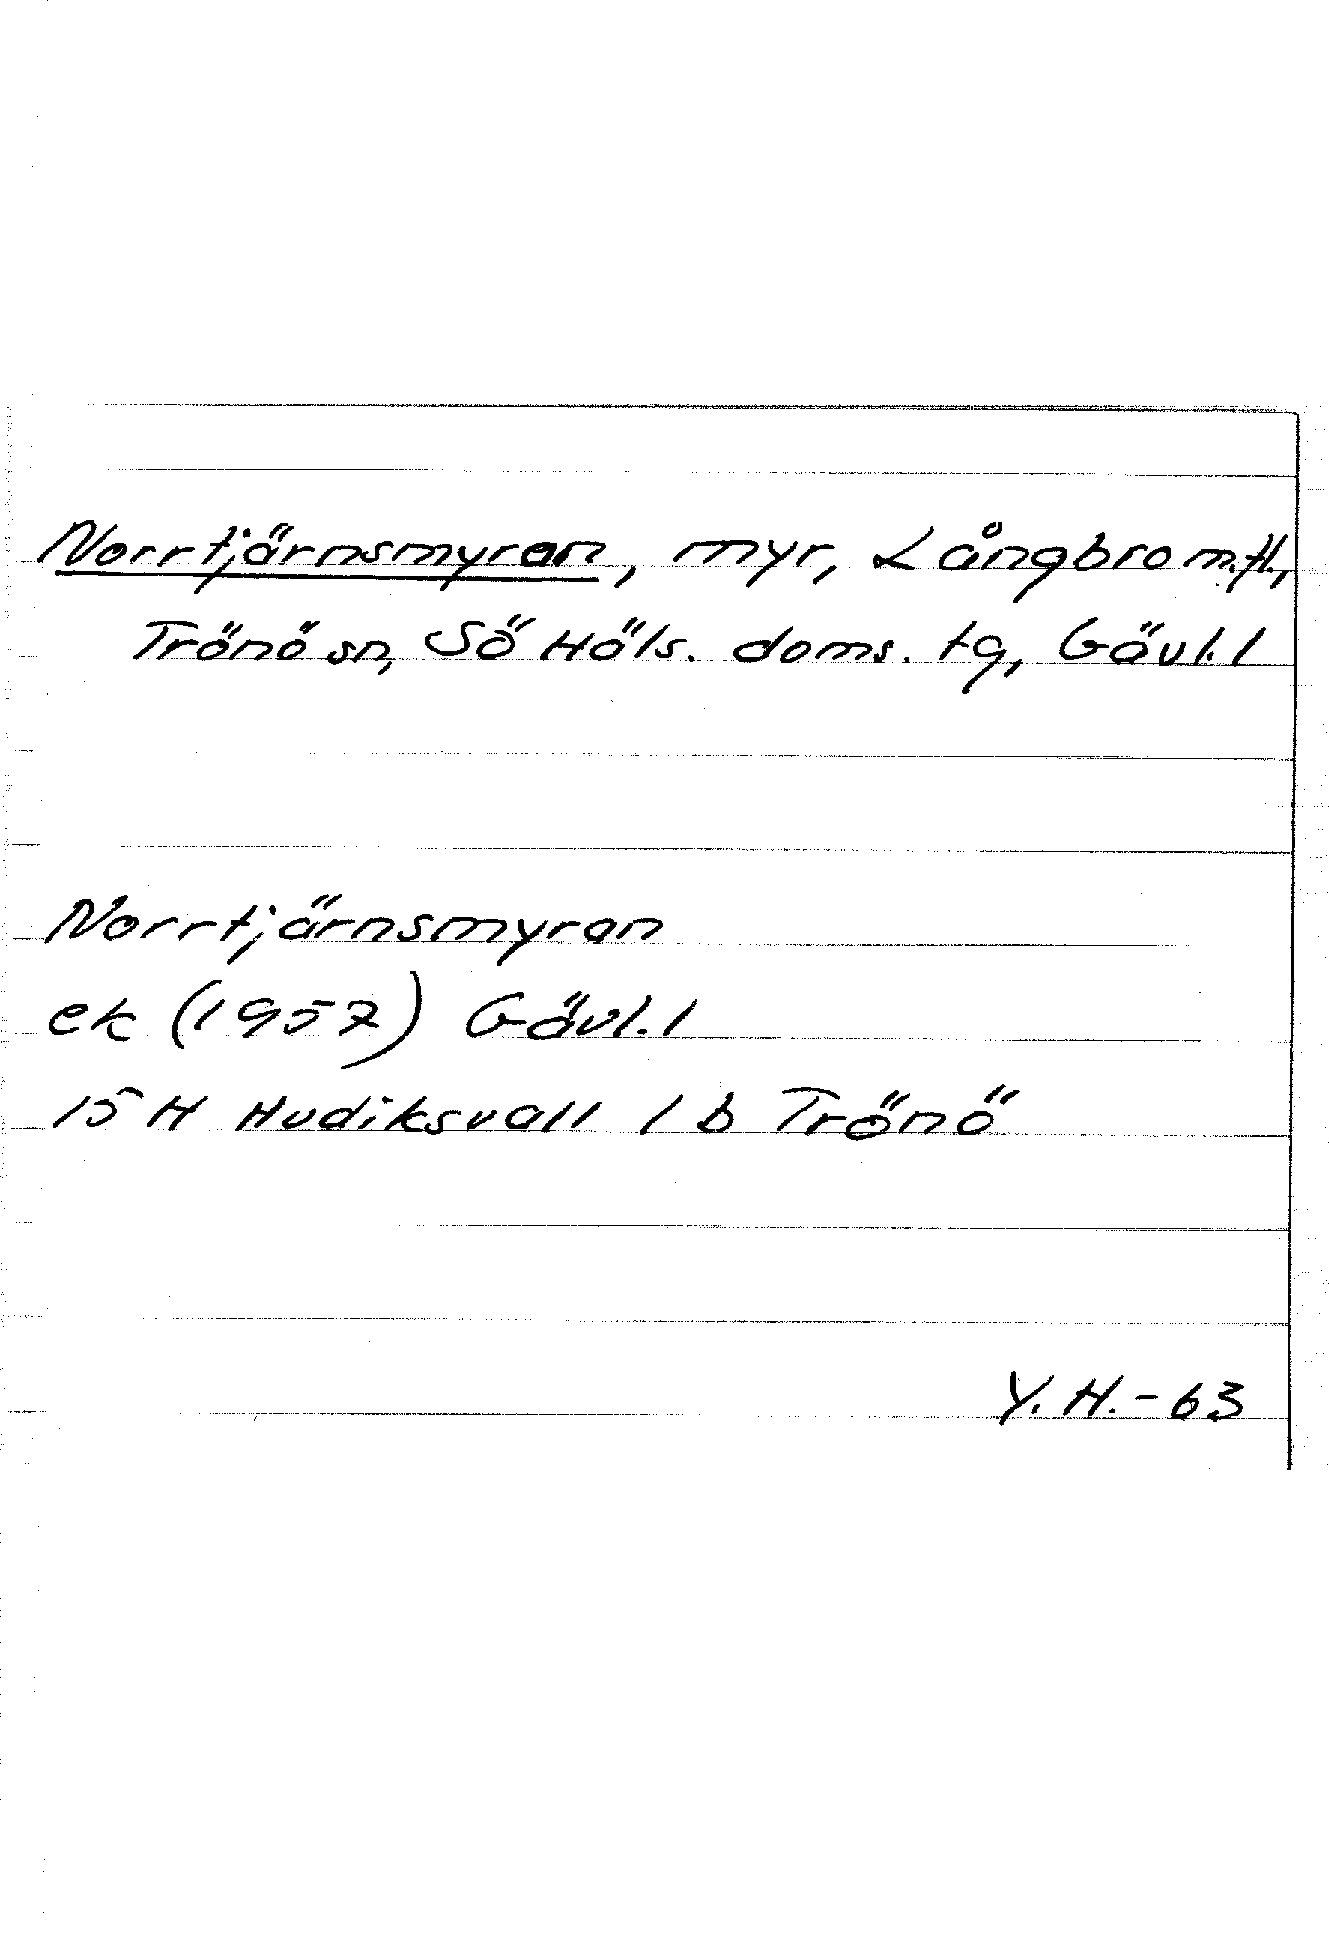 Norrtjärnsmyran, myr, Långbro m.fl.,
Trönö sn, Sö Häls. doms. tg, Gävl. l
Norrtjärnsmyran
ek (1957) Gävl. l
15 H Hudiksvall 1 b Trönö
Y. H. - 63